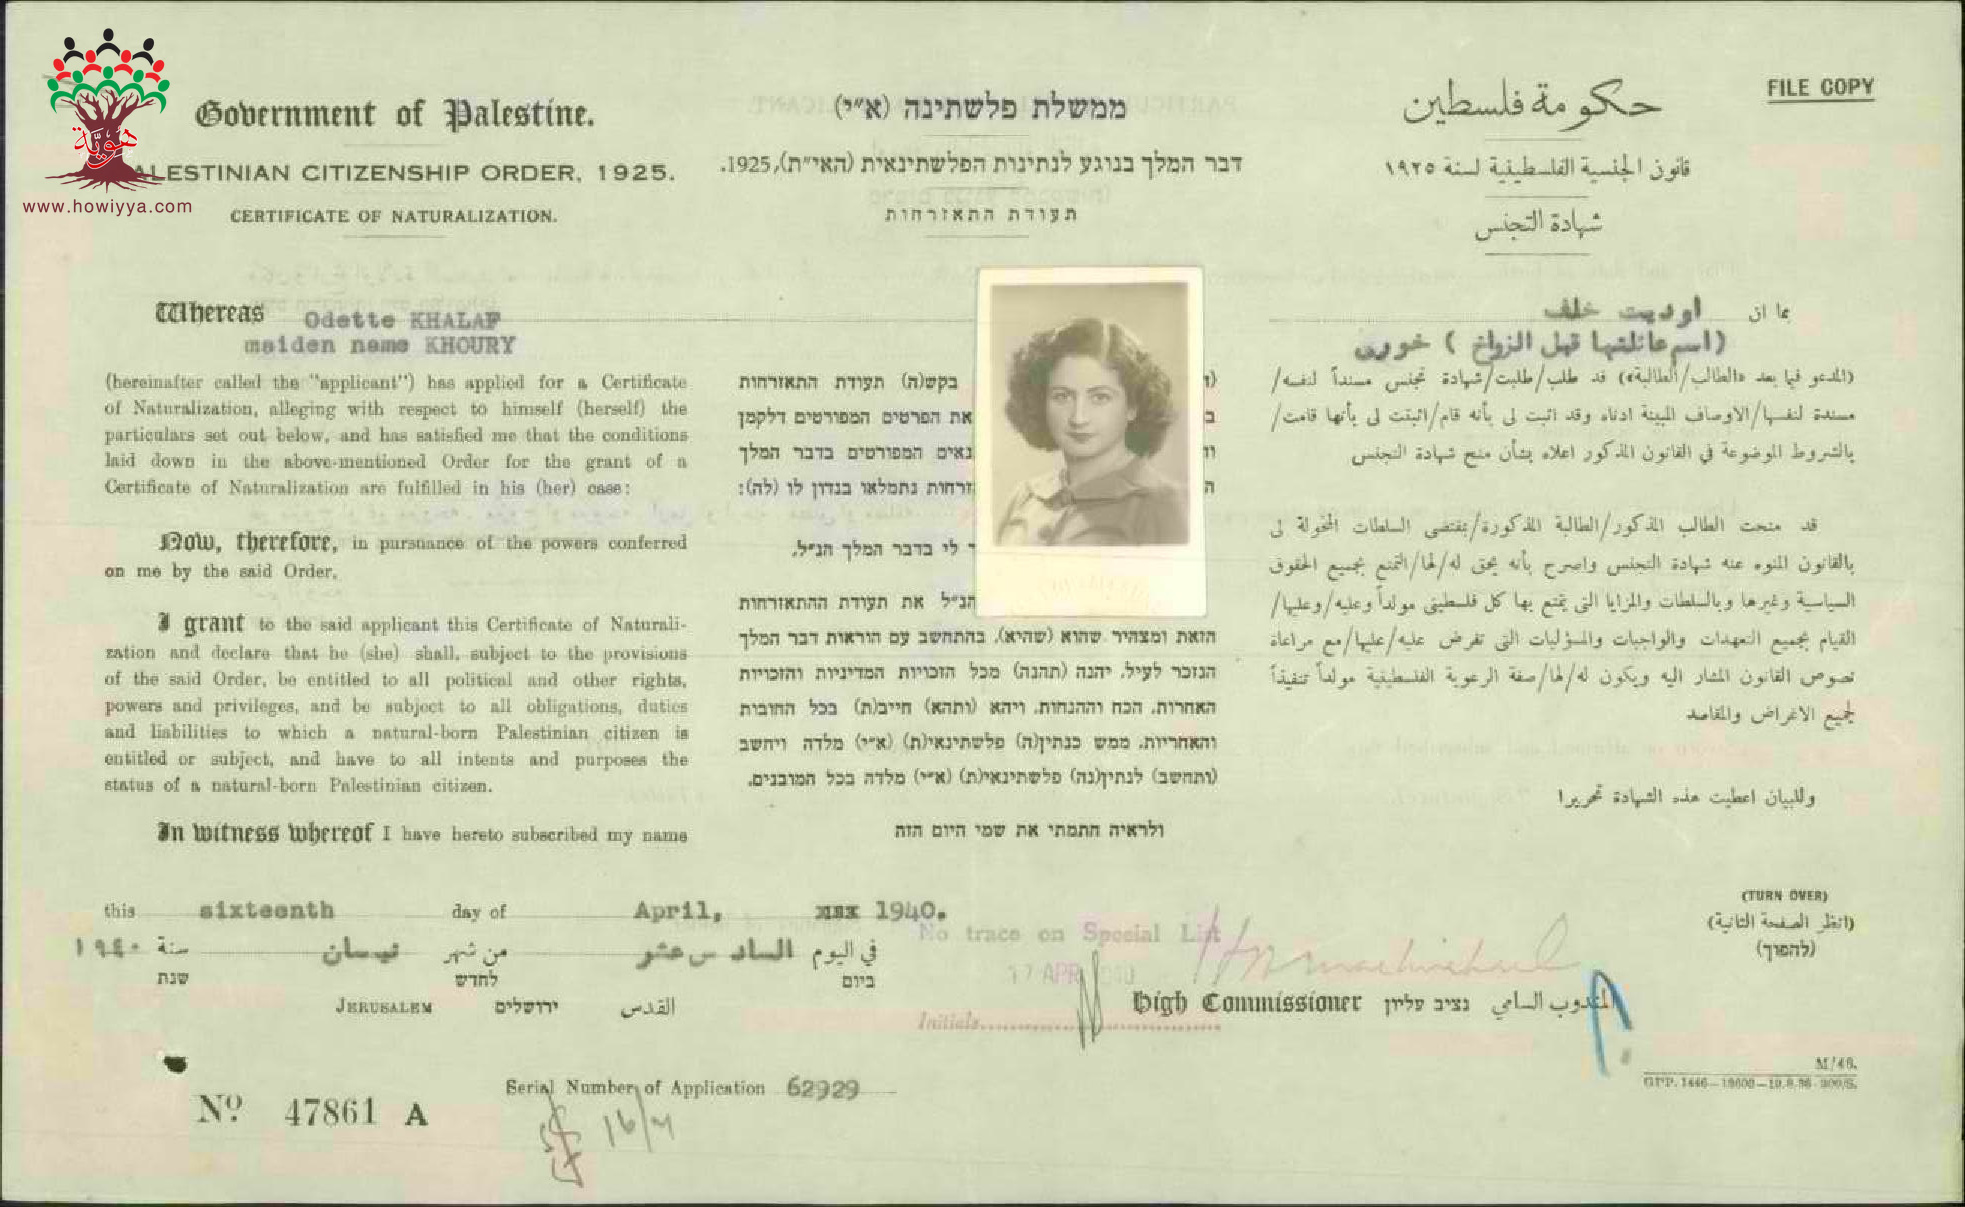 هوية
www.howiyya.com
FILE COPY
Government of Palestine.
PALESTINIAN CITIZENSHIP ORDER, 1925.
CERTIFICATE OF NATURALIZATION.
ממשלת פלשתינה (א״י)
דבר המלך בנוגע לנתינות הפלשתינאית (הא״ית), 1925.
תעודת התאזרחות
حكومة فلسطين
قانون الجنسية الفلسطينية لسنة ١٩٢٥
شهادة التجنس
Whereas Odette KHALAF
maiden name KHOURY
(hereinafter called the "applicant") has applied for a Certificate
of Naturalization, alleging with respect to himself (herself) the
particulars set out below, and has satisfied me that the conditions
laid down in the above-mentioned Order for the grant of a
Certificate of Naturalization are fulfilled in his (her) case:
Now, therefore, in pursuance of the powers conferred
on me by the said Order,
I grant to the said applicant this Certificate of Naturali-
zation and declare that he (she) shall, subject to the provisions
of the said Order, be entitled to all political and other rights,
powers and privileges, and be subject to all obligations, duties
and liabilities to which a natural-born Palestinian citizen is
entitled or subject, and have to all intents and purposes the
status of a natural-born Palestinian citizen.
In witness whereof I have hereto subscribed my name
בקש(ה) תעודת התאזרחות
את הפרטים המפורטים דלקמן
נאים המפורטים בדבר המלך
זרחות נתמלאו בנדון לו (לה):
לי בדבר המלך הנ״ל,
הנ״ל את תעודת ההתאזרחות
הזאת ומצהיר שהוא (שהיא), בהתחשב עם הוראות דבר המלך
הנזכר לעיל, יהנה (תהנה) מכל הזכויות המדיניות והזכויות
האחרות, הכח וההנחות, ויהא (ותהא) חייב(ת) בכל החובות
והאחריות, ממש כנתין(ה) פלשתינאי(ת) (א״י) מלדה ויחשב
(ותחשב) לנתין(נה) פלשתינאי(ת) (א״י) מלדה בכל המובנים.
ולראיה חתמתי את שמי היום הזה
بما ان اوديت خلف
(اسم عائلتها قبل الزواج) خورى
(المدعو فيما بعد «الطالب/الطالبة») قد طلب/طلبت/شهادة تجنس مسنداً لنفسه/
مسندة لنفسها/الاوصاف المبينة ادناه وقد اثبت لى بأنه قام/اثبتت لى بأنها قامت/
بالشروط الموضوعة في القانون المذكور اعلاه بشأن منح شهادة التجنس
قد منحت الطالب المذكور/الطالبة المذكورة/بمقتضى السلطات المخولة لى
بالقانون المنوه عنه شهادة التجنس واصرح بأنه يحق له/لها/التمتع بجميع الحقوق
السياسية وغيرها وبالسلطات والمزايا التى يتمتع بها كل فلسطينى مولداً وعليه/وعليها/
القيام بجميع التعهدات والواجبات والمسؤليات التى تفرض عليه/عليها/مع مراعاة
نصوص القانون المشار اليه ويكون له/لها/صفة الرعوية الفلسطينية مولداً تنفيذاً
لجميع الاغراض والمقاصد
وللبيان اعطيت هذه الشهادة تحريرا
this sixteenth day of April, 1940.
في اليوم السادس عشر من شهر نيسان سنة ١٩٤٠
ביום לחדש שנת
JERUSALEM ירושלים القدس
No trace on Special List
17 APR 1940
Initials
High Commissioner נציב עליון المندوب السامي
(TURN OVER)
(انظر الصفحة الثانية)
(להפוך)
M/48.
Serial Number of Application 62929
16/4
Nº 47861 A